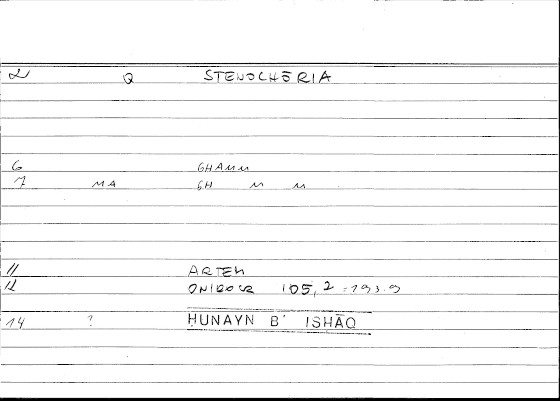 2 Q STENOCHŌRIA
6 GHAMM
7 MA GH M M
11 ARTEM
12 ONIROCR 105,2 = 193.9
14 ? ḤUNAYN B. ISḤĀQ